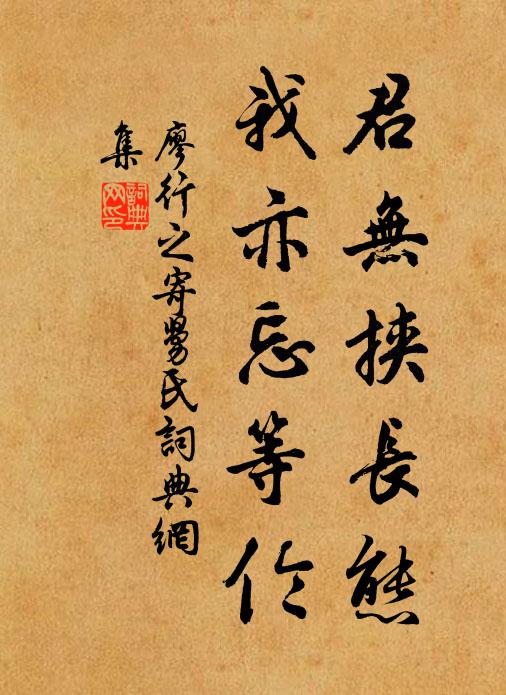 君無挾長態
我亦忘等伦
廖行之寄舅氏詞典網
集
詞典
网印